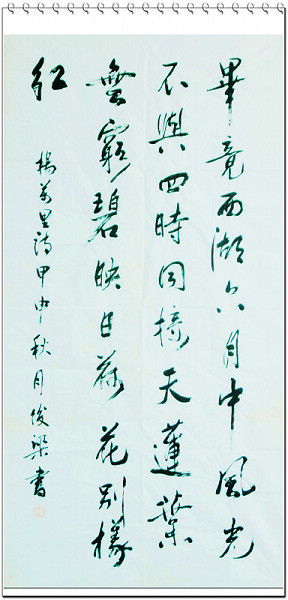 畢竟西湖六月中風光
不與四時同接天蓮葉
無窮碧映日荷花別樣
紅
楊萬里詩甲申秋月俊梁書